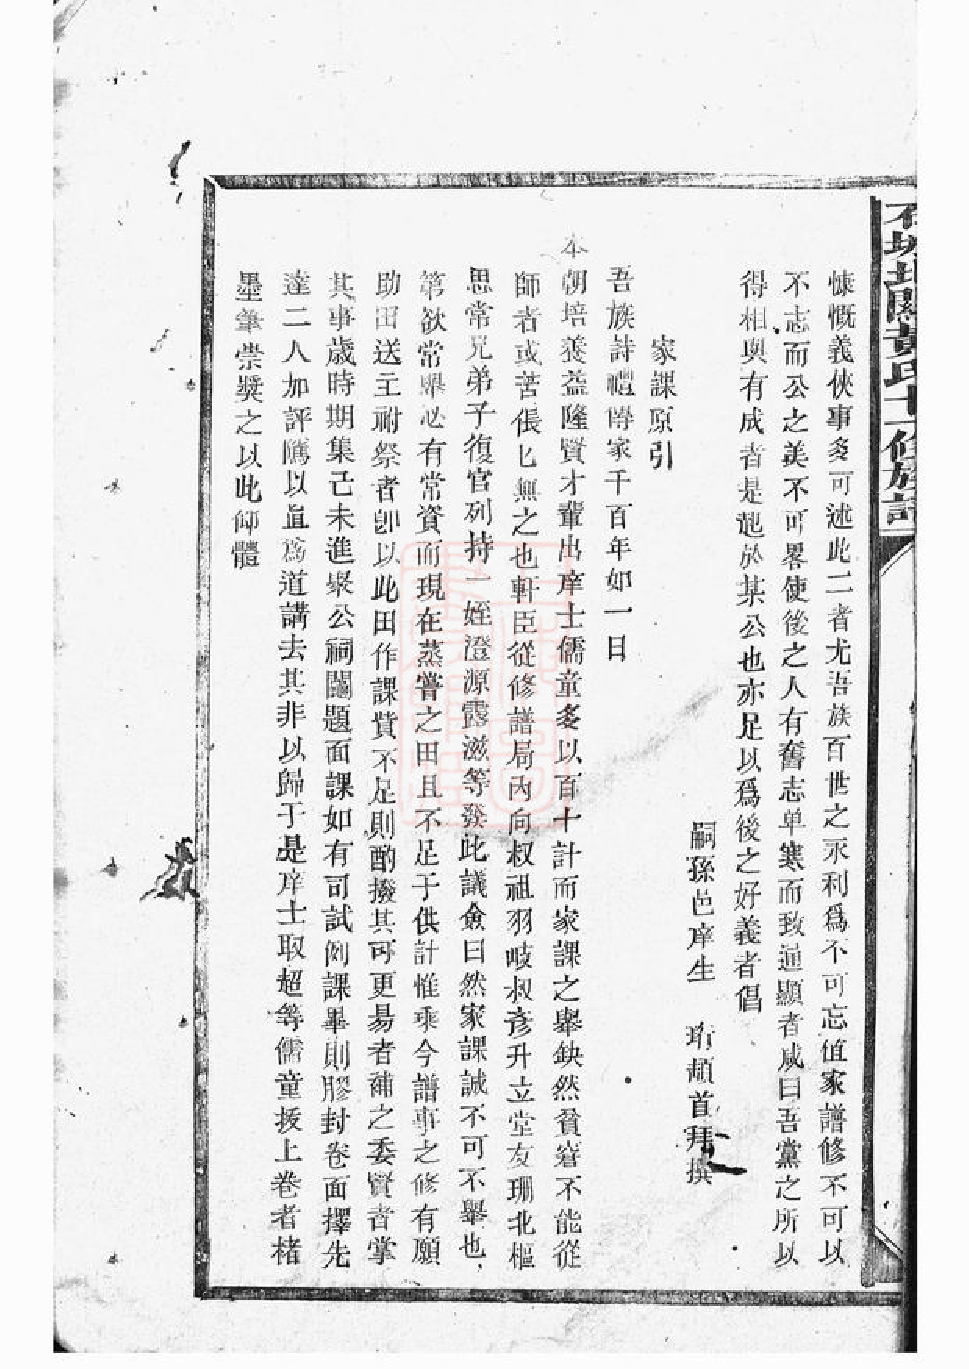 石城坵關黃氏十一修族譜
慷慨義俠事多可述此二者尤吾族百世之永利爲不可忘值家譜修不可以
不志而公之美不可畧使後之人有奮志单寒而致通顯者咸曰吾黨之所以
得相與有成者是起於某公也亦足以爲後之好義者倡
嗣孫邑庠生 珩頓首拜撰
家課原引
吾族詩禮傳家千百年如一日
本朝培養益隆賢才輩出庠士儒童多以百十計而家課之舉缺然貧窘不能從
師者或苦倀匕無之也軒臣從修譜局內向叔祖羽岐叔彥升立堂友珊北樞
思常兄弟子復官列持一姪澄源露滋等發此議僉曰然家課誠不可不舉也
第欲常舉必有常資而現在蒸嘗之田且不足于供計惟乘今譜事之修有願
助田送主祔祭者卽以此田作課貲不足則酌撥其可更易者補之委賢者掌
其事歲時期集己未進聚公祠鬮題面課如有司試例課畢則膠封卷面擇先
達二人加評隲以直爲道講去其非以歸于是庠士取超等儒童拔上卷者楮
墨筆崇獎之以此仰體